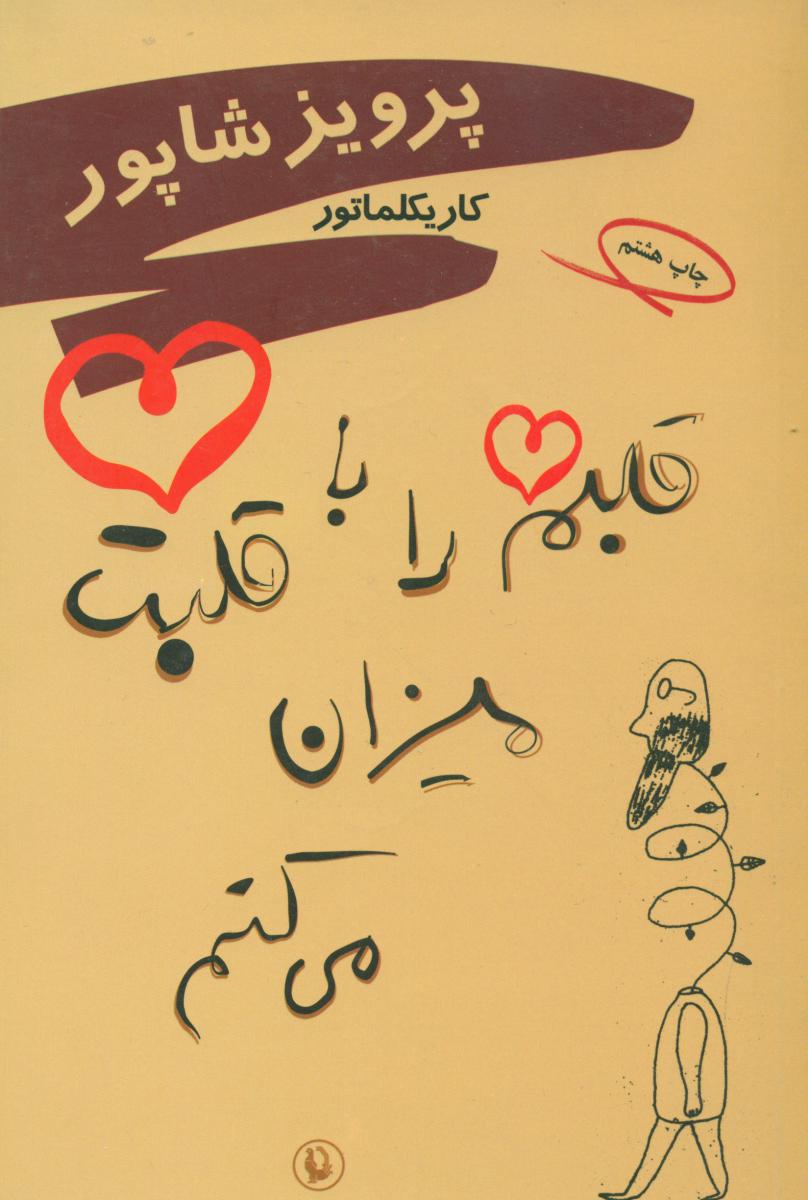 پرویز شاپور
کاریکلماتور
چاپ هشتم
قلبم را با قلبت
میزان
می‌کنم